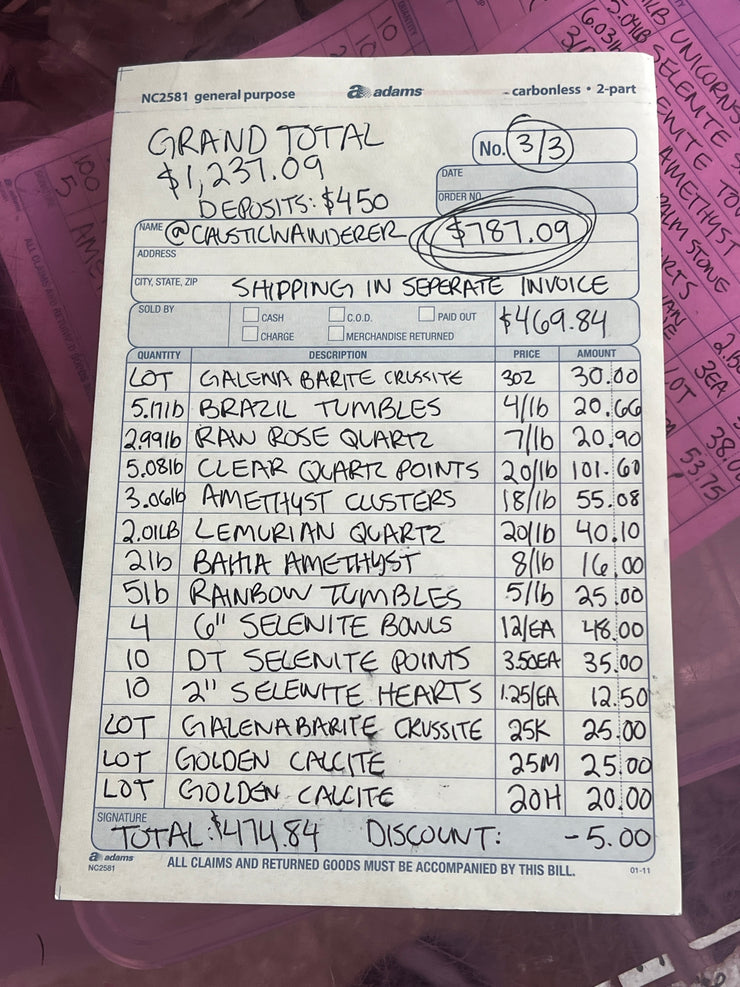 NC2581 general purpose
adams
carbonless • 2-part
GRAND TOTAL
$1,237.09
DEPOSITS: $450
No. 3/3
DATE
ORDER NO.
NAME @CAUSTICWANDERER
$787.09
ADDRESS
CITY, STATE, ZIP
SHIPPING IN SEPERATE INVOICE
SOLD BY
CASH C.O.D. PAID OUT
CHARGE MERCHANDISE RETURNED
$469.84
QUANTITY DESCRIPTION PRICE AMOUNT
LOT GALENA BARITE CRUSSITE 30Z 30.00
5.17lb BRAZIL TUMBLES 4/lb 20.66
2.99lb RAW ROSE QUARTZ 7/lb 20.90
5.08lb CLEAR QUARTZ POINTS 20/lb 101.60
3.06lb AMETHYST CLUSTERS 18/lb 55.08
2.01LB LEMURIAN QUARTZ 20/lb 40.10
2lb BAHIA AMETHYST 8/lb 16.00
5lb RAINBOW TUMBLES 5/lb 25.00
4 6" SELENITE BOWLS 12/EA 48.00
10 DT SELENITE POINTS 3.50EA 35.00
10 2" SELENITE HEARTS 1.25/EA 12.50
LOT GALENA BARITE CRUSSITE 25K 25.00
LOT GOLDEN CALCITE 25M 25.00
LOT GOLDEN CALCITE 20H 20.00
SIGNATURE
TOTAL: $474.84 DISCOUNT: -5.00
adams
NC2581
ALL CLAIMS AND RETURNED GOODS MUST BE ACCOMPANIED BY THIS BILL.
01-11
UNICORNS
SELENITE
AMETHYST
PALM STONE
LOT
3EA
53.75
QUANTITY
10
10
100
5